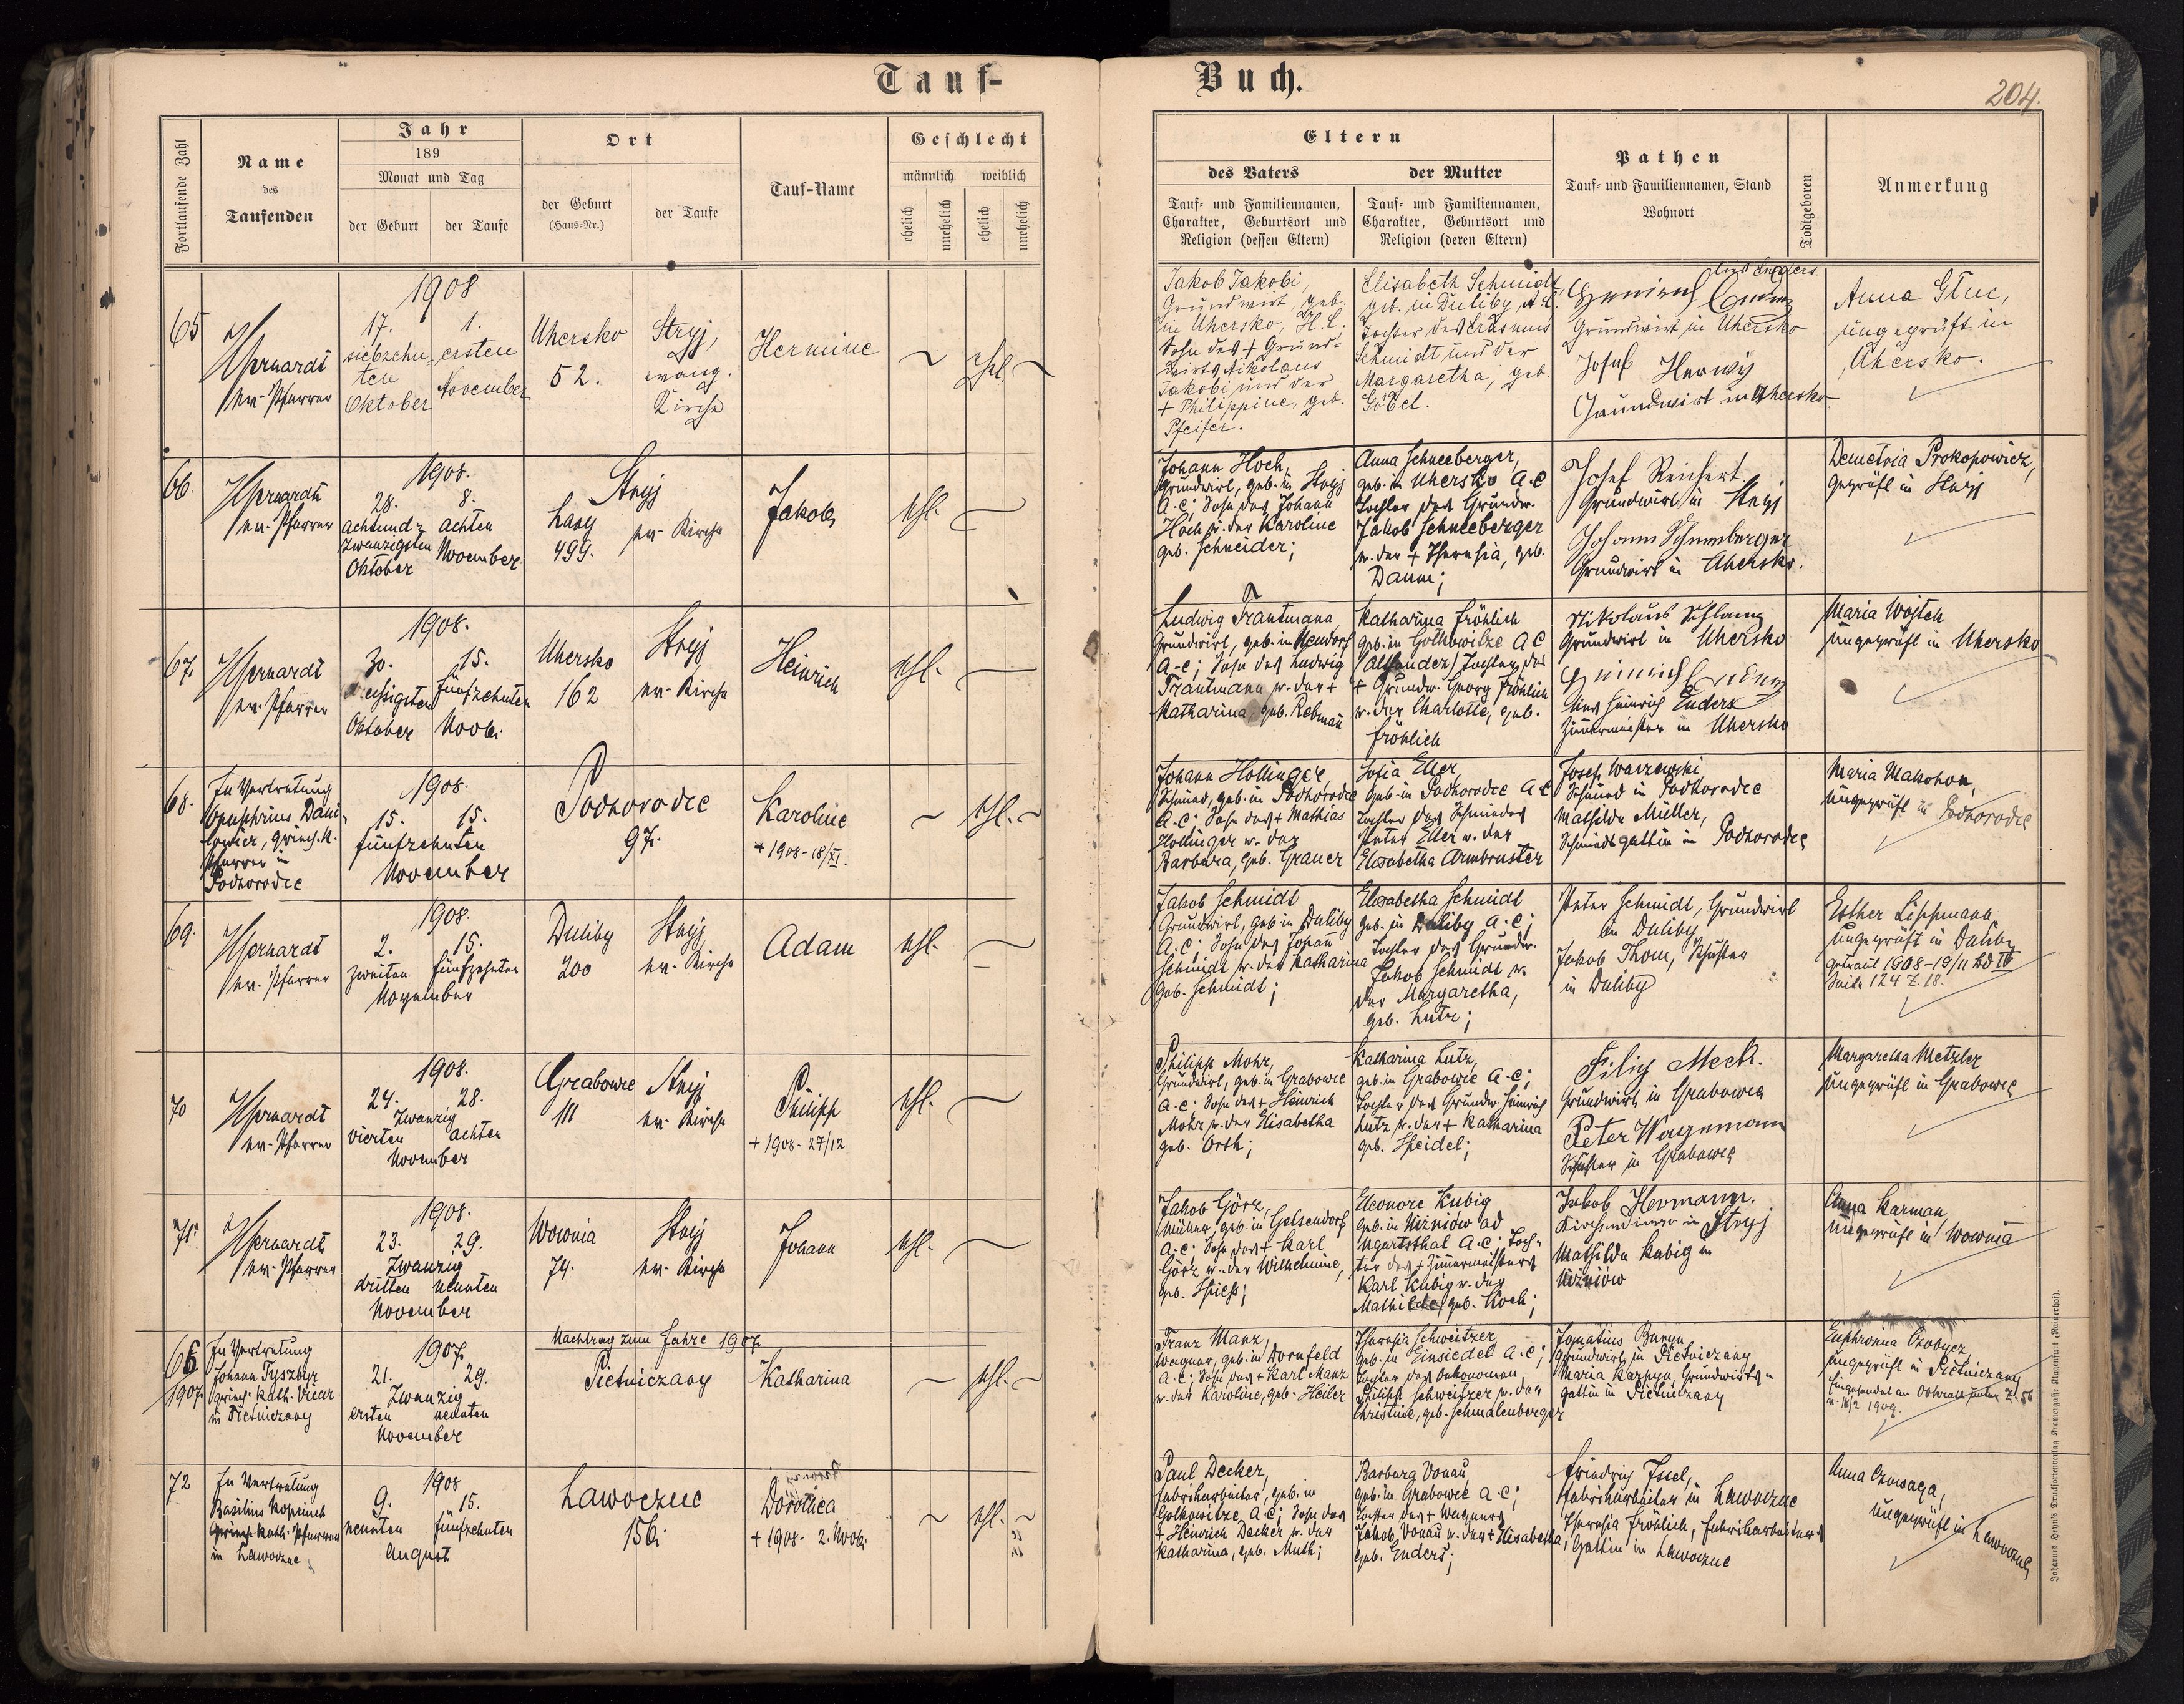 Tauf-
Buch.
204.
Fortlaufende Zahl
Name
des
Taufenden
Jahr
189
Monat und Tag
der Geburt
der Taufe
Ort
der Geburt
(Haus-Nr.)
der Taufe
Tauf-Name
Geschlecht
männlich
weiblich
ehelich
unehelich
ehelich
unehelich
Eltern
des Vaters
der Mutter
Tauf- und Familiennamen,
Charakter, Geburtsort und
Religion (dessen Eltern)
Tauf- und Familiennamen,
Charakter, Geburtsort und
Religion (deren Eltern)
Pathen
Tauf- und Familiennamen, Stand
Wohnort
Todtgeboren
Anmerkung
65
ev. Pfarrer
1908
17. 1.
siebzehn- ersten
ten
Oktober November
Uhersko
52.
Stryj,
evang.
Kirche
Hermine
ehel.
Jakob Jakobi,
Grundwirt, geb.
in Uhersko, H.C.
Sohn des + Grund-
wirts Nikolaus
Jakobi und der
+ Philippine, geb.
Pfeifer.
Elisabeth Schmidt,
geb. in Duliby, A.C.
Tochter des Erasmus
Schmidt und der
Margaretha, geb.
Göbel.
Heinrich Enders
Grundwirt in Uhersko
Josef
Grundwirt in Uhersko
Anna Gluc,
ungeprüft in
Uhersko.
66.
ev. Pfarrer
1908.
28. 8.
achtund- achten
zwanzigsten
Oktober November
Stryj
Lany
499.
ev. Kirche
Jakob
ehl.
Johann Hoch,
Grundwirt, geb. in Stryj
A.C; Sohn des Johann
Hoch u. der Karoline
geb. Schneider;
Anna Schneeberger,
geb. in Uhersko A.C
Tochter des Grundw.
Jakob Schneeberger
u. der + Theresia, geb.
Daum;
Josef Reichert
Grundwirt in Stryj
Johann Schneeberger
Grundwirt in Uhersko.
Demetria Prokopowicz,
geprüft in Stryj
67.
ev. Pfarrer
1908.
30. 15.
dreissigsten fünfzehnten
Oktober Novb.
Uhersko
162
Stryj
ev. Kirche
Heinrich
ehl.
Ludwig Trautmann
Grundwirt, geb. in Neudorf
A.C; Sohn des Ludwig
Trautmann u. der +
Katharina, geb. Rebmann
Katharina Fröhlich
geb. in A C
Tochter des
+ Grundw. Georg Fröhlich
u. der Charlotte, geb.
Fröhlich
Nikolaus
Grundwirt in Uhersko
Heinrich Enders
Heinrich Enders
Zimmermeister in Uhersko
Maria Wojtek
ungeprüft in Uhersko
68.
In Vertretung
Onuphrius
Pfarrer in
Podhorodce
1908.
15. 15.
fünfzehnten
November
Podhorodce
97.
Karoline
+ 1908 - 18/XI.
ehl.
Johann Hollinger,
Schmied, geb. in Podhorodce
A.C; Sohn des + Mathias
Hollinger u. der
Barbara, geb. Grauer
Sofia Eller,
geb. in Podhorodce A C
Tochter des Schmiedes
Peter Eller u. der
Elisabetha Armbruster
Josef Warzewski
Schmied in Podhorodce
Mathilde Müller,
Schmiedsgattin in Podhorodce
Maria Makohon,
ungeprüft in Podhorodce
69.
ev. Pfarrer
1908.
2. 15.
zweiten fünfzehnten
November
Duliby
200
Stryj
ev. Kirche
Adam
ehl.
Jakob Schmidt
Grundwirt, geb in Duliby
A.C; Sohn des Johann
Schmidt u. der Katharina
geb. Schmidt;
Elisabetha Schmidt
geb. in Duliby A.C;
Tochter des Grundw.
Jakob Schmidt u.
der Margaretha,
geb. Lutz;
Peter Schmidt, Grundwirt
in Duliby
Jakob Thom, Schuster
in Duliby
Esther Lippmann,
ungeprüft in Duliby
getraut 1908-19/11 Bd IV
Seite 124 Z. 18.
70
ev. Pfarrer
1908.
24. 28.
Zwanzig
vierten achten
November
Grabowce
111
Stryj
ev. Kirche
Philipp
+ 1908 - 27/12
ehl.
Philipp Mohr,
Grundwirt, geb. in Grabowce
A.C; Sohn des + Heinrich
Mohr u. der Elisabetha
geb. Orth;
Katharina Lutz,
geb. in Grabowce A.C;
Tochter des Grundw. Heinrich
Lutz u. der + Katharina
geb. Speidel;
Filip Meck.
Grundwirt in Grabowce
Peter Wagemann
Schuster in Grabowce
Margaretha Metzler
ungeprüft in Grabowce
71.
ev. Pfarrer
1908.
23. 29.
Zwanzig
dritten neunten
November
Wownia
74.
Stryj
ev. Kirche
Johann
ehl.
Jakob Görz,
Müller, geb. in Gelsendorf
A.C; Sohn des + Karl
Görz u. der Wilhelmine,
geb. Spiess;
Eleonore Kubig
geb. in Niżniów ad
Ugartsthal A.C; Toch-
ter des + Zimmermeisters
Karl Kubig u. der
Mathilde, geb. Koch;
Jakob Hermann.
Kirchendiener in Stryj
Mathilde Kubig in
Niżniów
Anna Karman
ungeprüft in Wownia
66
1907
In Vertretung
Johann Tyszkyr
griech. kath. Vicar
in Pietniczany
1907
21. 29.
Zwanzig
ersten neunten
November
Nachtrag zum Jahre 1907
Pietniczany
Katharina
ehl.
Franz Manz,
Wagner, geb. in Dornfeld
A.C; Sohn des + Karl Manz
u. der Karoline, geb. Heiler
Theresia Schweitzer,
geb. in Einsiedel A.C;
Tochter des Oekonomen
Philipp Schweitzer u. der
Christine, geb. Schmalenberger
Ignatius
Grundwirt in Pietniczany
Maria Karpyn, Grundwirts-
gattin in Pietniczany
Euphrosina
ungeprüft in Pietniczany
v. 16/2 1909.
72
In Vertretung
Basilius
griech. kath. Pfarrer
in Lawoczne
1908
9. 15.
neunten fünfzehnten
August
Lawoczne
156.
Dorothea
+ 1908 - 2. Novb.
ehl.
Paul Decker,
Fabriksarbeiter, geb. in
A.C; Sohn des
+ Heinrich Decker u. der
Katharina, geb. Muth;
Barbara Donau,
geb. in Grabowce A.C;
Tochter des + Wagners
Jakob Donau u. der + Elisabetha,
geb. Enders;
Friedrich Issel,
Fabriksarbeiter in Lawoczne
Theresia Fröhlich, Fabriksarbeiters
Gattin in Lawoczne
Anna
ungeprüft in Lawoczne